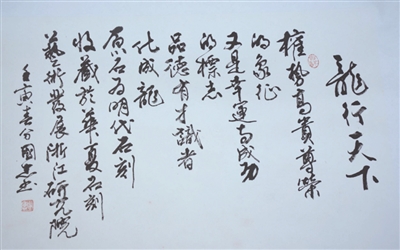 龍行天下
權勢高貴尊榮
的象征
又是幸運与成功
的標志
品德有才識者
化成龍
原石为明代石刻
收藏於華夏石刻
藝術發展浙江研究院
壬寅春分國忠书